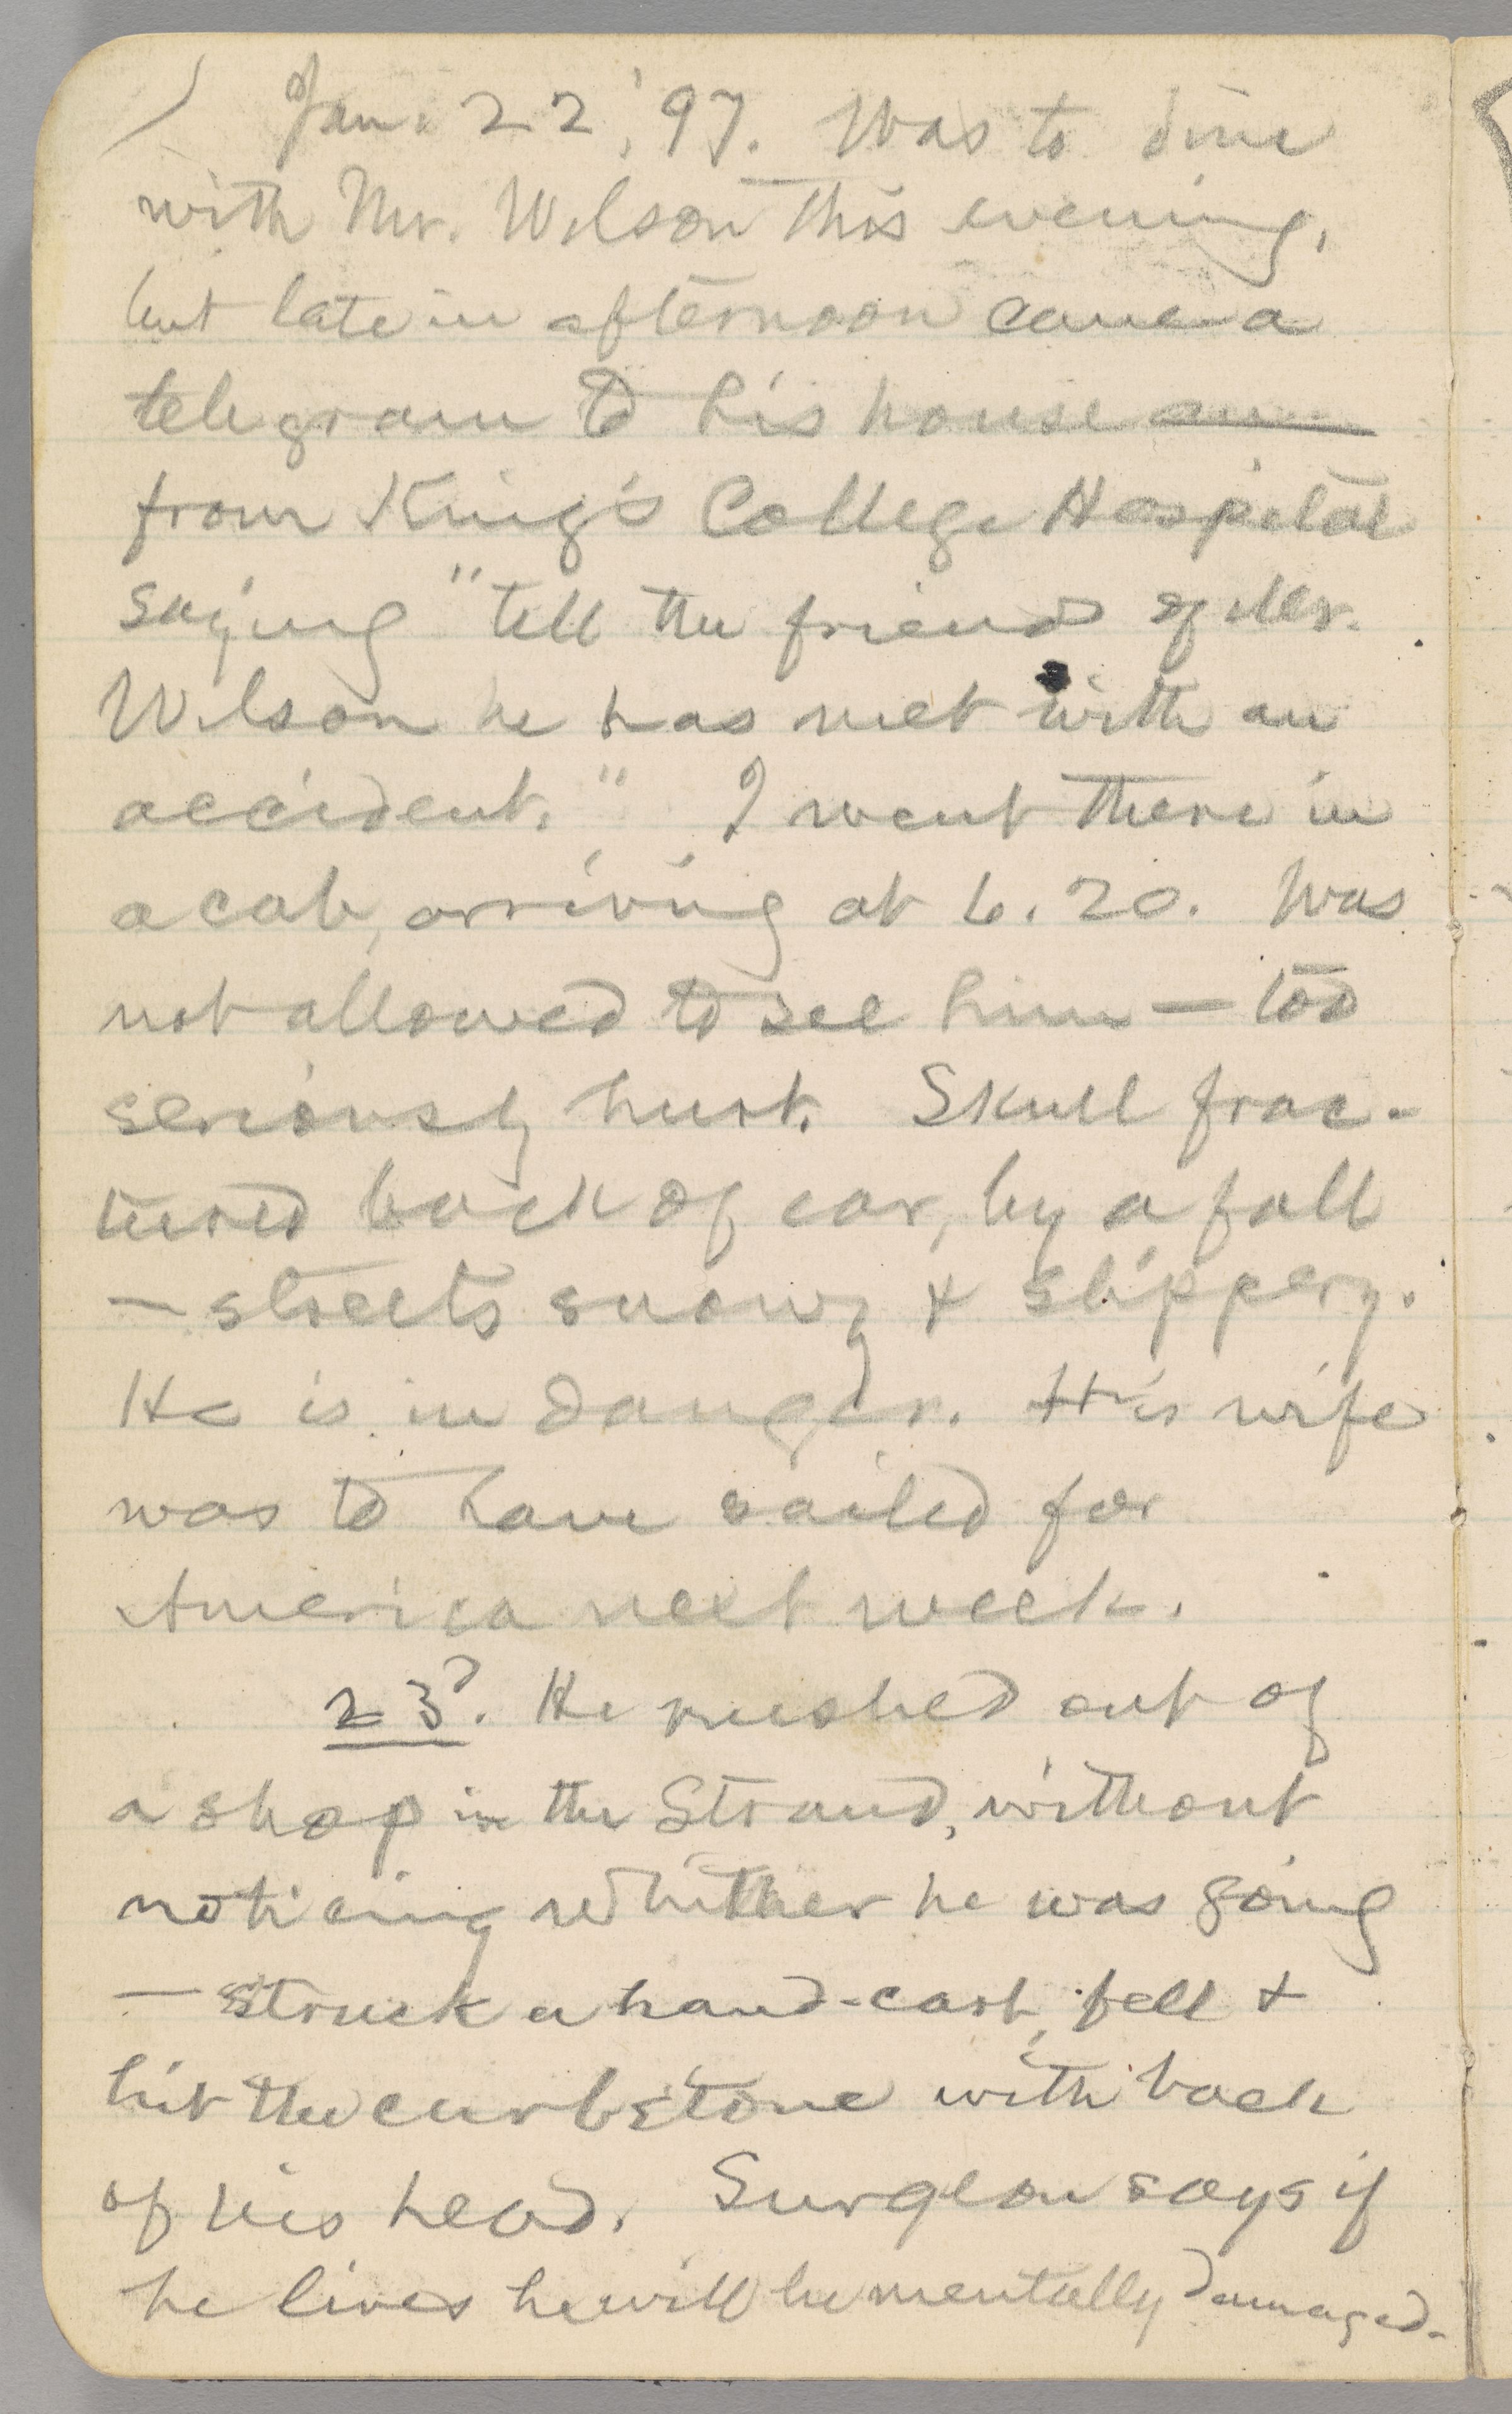 Jan. 22, '97. Was to dine
with Mr. Wilson this evening,
but late in afternoon came a
telegram to his house
from King's College Hospital
saying "tell the friends of Mr.
Wilson he has met with an
accident." I went there in
a cab, arriving at 6.20. Was
not allowed to see him — too
seriously hurt. Skull frac-
tured back of ear, by a fall
— streets snowy & slippery.
He is in danger. His wife
was to have sailed for
America next week.
23d. He rushed out of
a shop in the Strand, without
noticing whither he was going
— struck a hand-cart, fell &
hit the curbstone with back
of his head. Surgeon says if
he lives he will be mentally damaged.